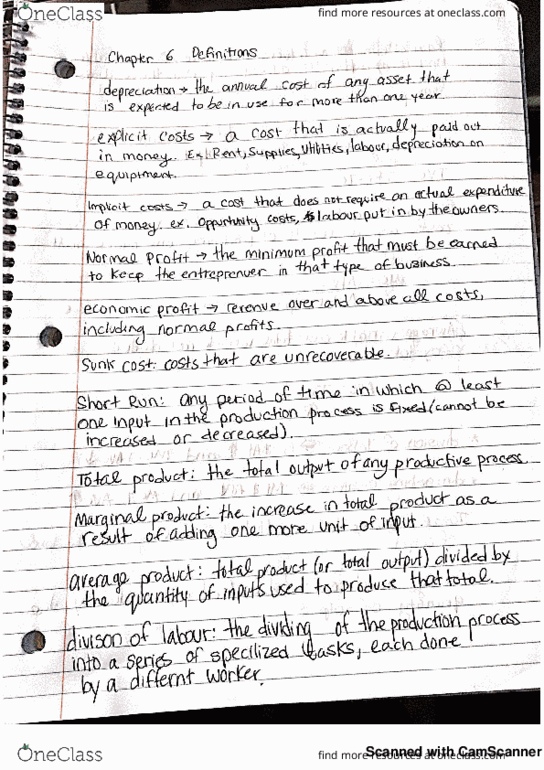 OneClass
find more resources at oneclass.com
Chapter 6 Definitions
depreciation → the annual cost of any asset that
is expected to be in use for more than one year
explicit costs → a cost that is actually paid out
in money. Ex. Rent, supplies, utilities, labour, depreciation on
equiptment.
Implicit costs → a cost that does not require an actual expenditure
of money. ex. Opportunity costs, labour put in by the owners.
Normal Profit → the minimum profit that must be earned
to keep the entreprenuer in that type of business.
economic profit → revenue over and above all costs,
including normal profits.
Sunk cost: costs that are unrecoverable.
Short Run: any period of time in which @ least
one input in the production process is fixed (cannot be
increased or decreased).
Total product: the total output of any productive process.
Marginal product: the increase in total product as a
result of adding one more unit of input.
average product: total product (or total output) divided by
the quantity of inputs used to produce that total.
divison of labour: the dividing of the production process
into a series of specilized tasks, each done
by a differnt worker.
OneClass
find more resources at oneclass.com
Scanned with CamScanner